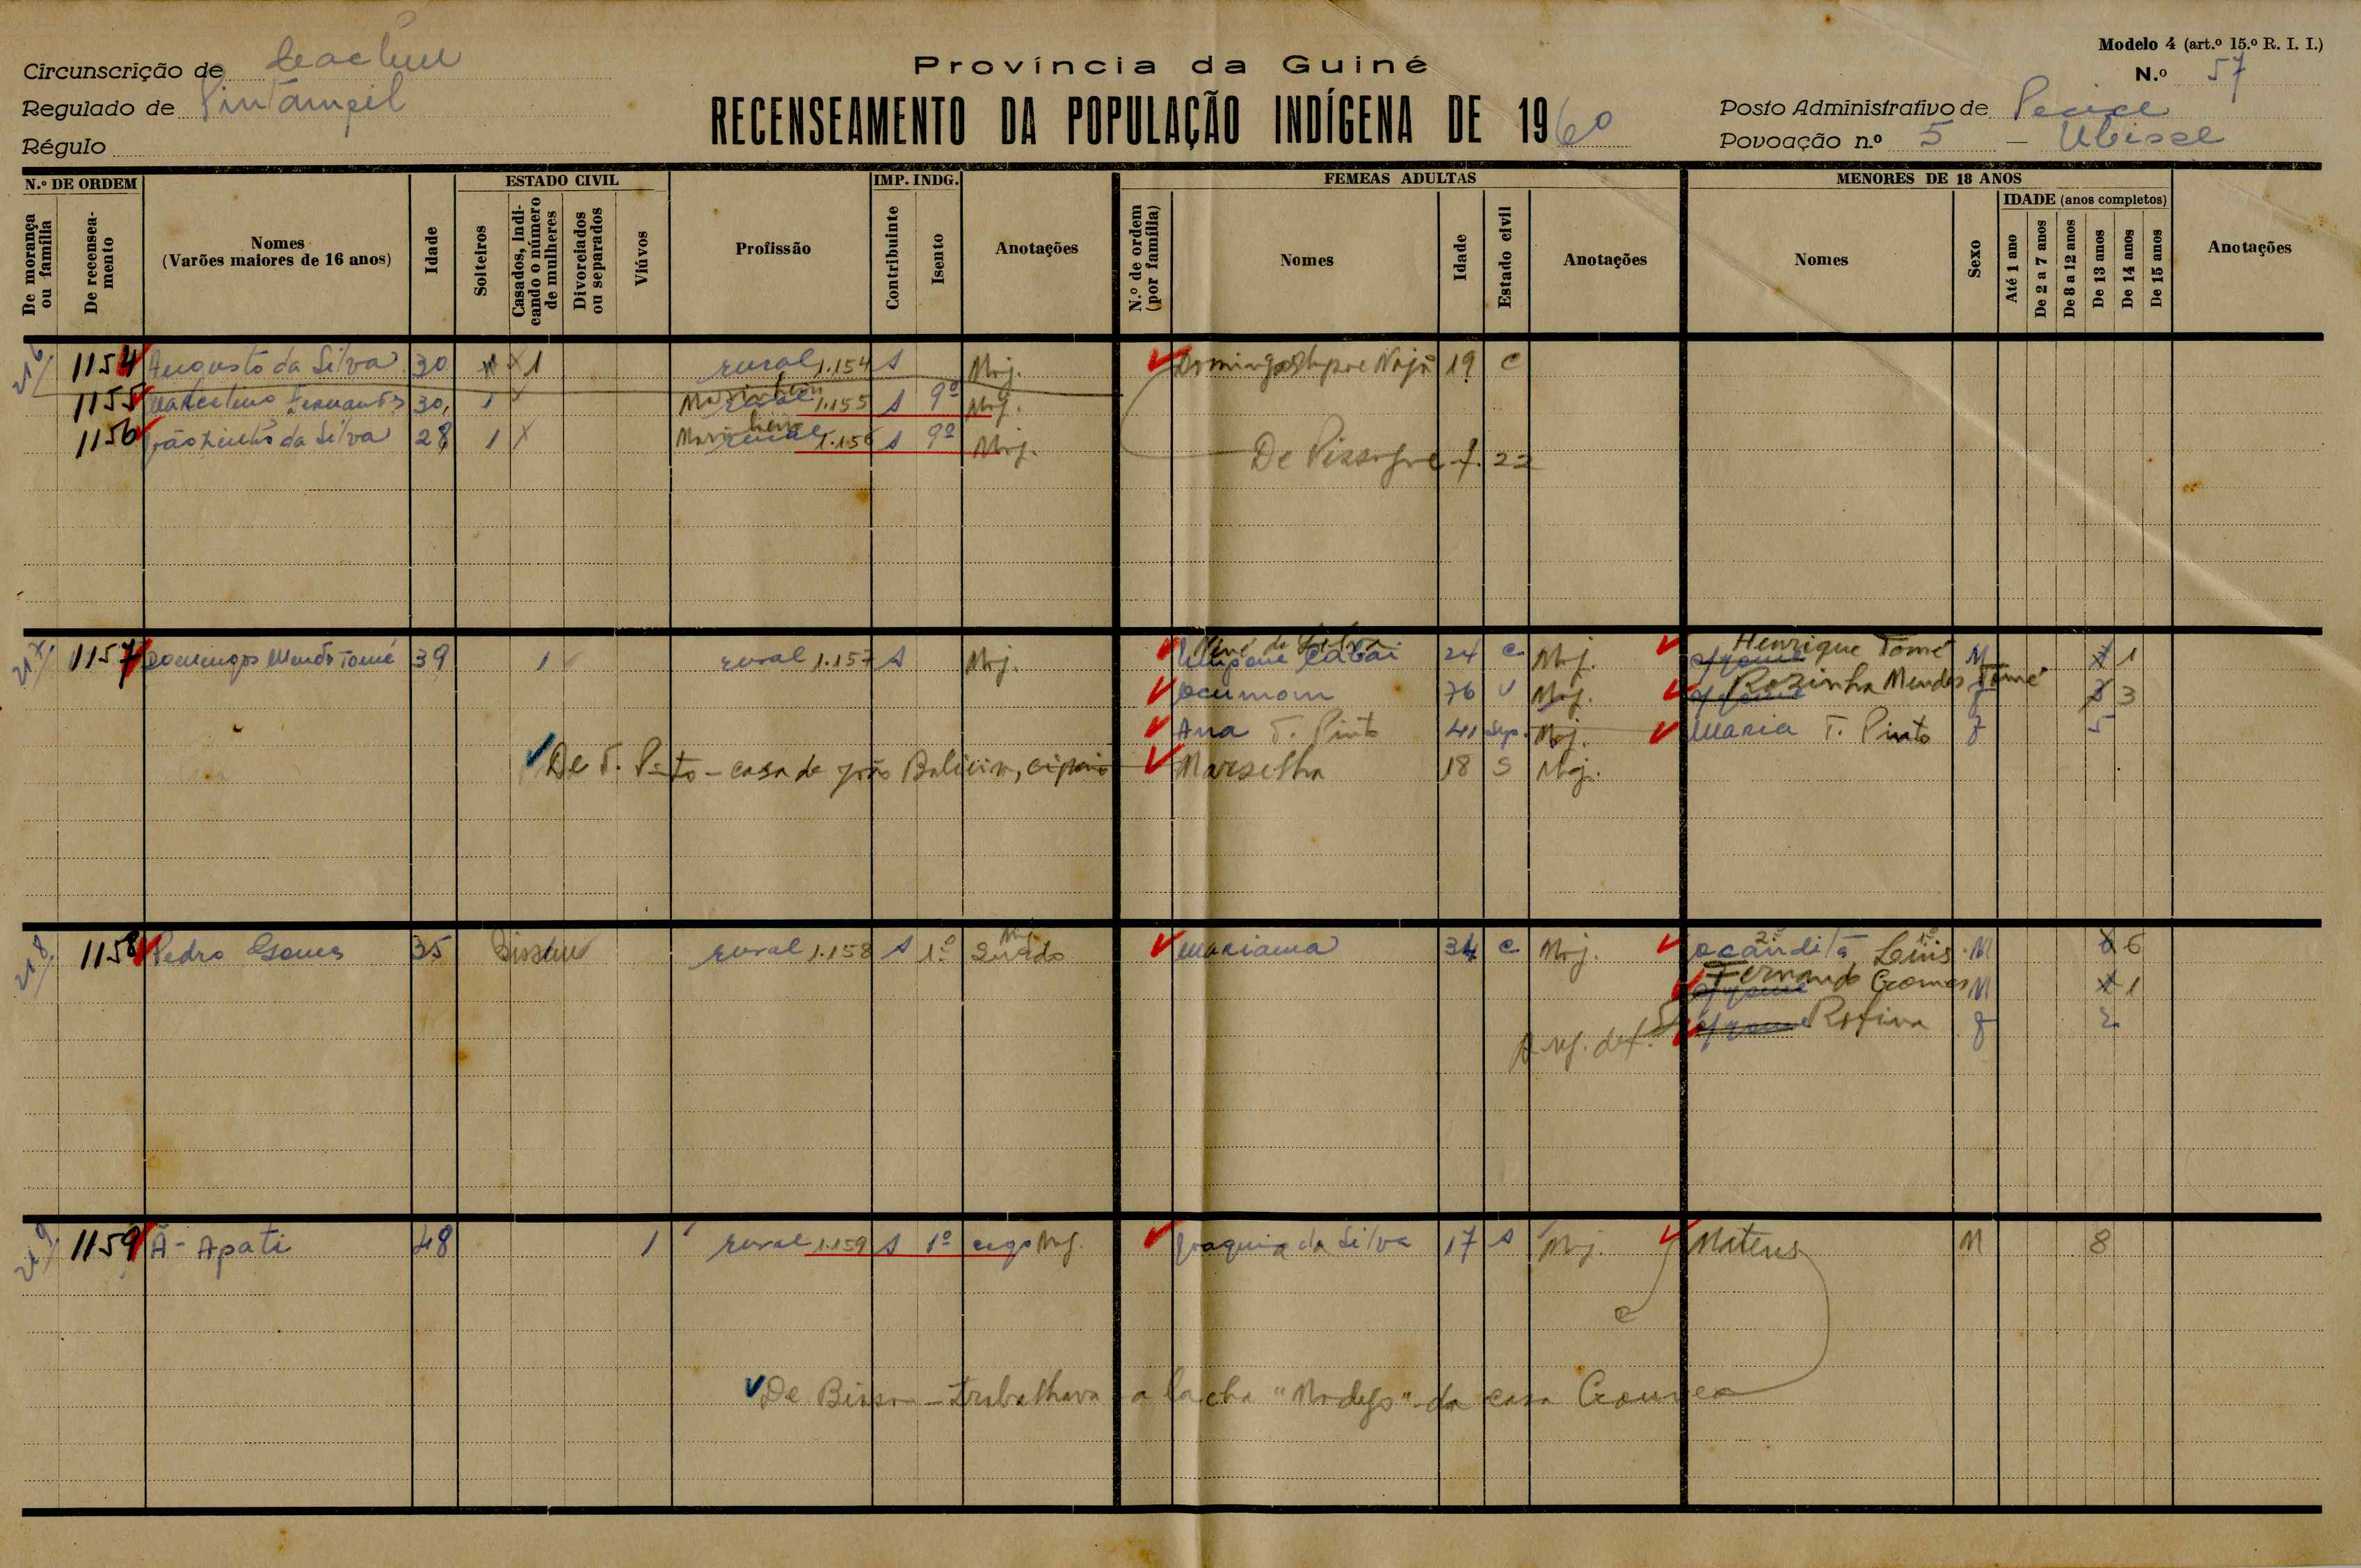 Modelo 4 (art.º 15.º R. I. I.)
Circunscrição de
Província da Guiné
N.º 57
Regulado de
RECENSEAMENTO DA POPULAÇÃO INDÍGENA DE 1960
Posto Administrativo de
Régulo
Povoação n.º 5 —
N.º DE ORDEM
ESTADO CIVIL
IMP. INDG.
FEMEAS ADULTAS
MENORES DE 18 ANOS
De morança ou família
De recenseamento
Nomes
(Varões maiores de 16 anos)
Idade
Solteiros
Casados, indicando o número de mulheres
Divorciados ou separados
Viúvos
Profissão
Contribuinte
Isento
Anotações
N.º de ordem (por família)
Nomes
Idade
Estado civil
Anotações
Nomes
Sexo
IDADE (anos completos)
Até 1 ano
De 2 a 7 anos
De 8 a 12 anos
De 13 anos
De 14 anos
De 15 anos
Anotações
1154 Augusto da Silva 30 X 1 rural 1.154 s Mrj. 19 c
1155 Fernandes 30 1 X rural 1.155 s 9º Mrj.
1156 Joãozinho da Silva 28 1 X rural 1.156 s 9º Mrj.
De f. 22
217 1157 Domingos Mendes Tomé 39 1 rural 1.157 s Mrj. 24 c Mrj. Henrique Tomé M 1
76 v Mrj. Rozinha Mendes Tomé f 3
Ana T. Pinto 41 sep. Mrj. Maria T. Pinto f 5
De T. Pinto - casa de João
Marselha 18 s Mrj.
218 1158 Pedro Gomes 35 Bissau rural 1.158 s 1º Mariama 34 c Mrj. M 6
Fernando Gomes M 1
Rofina f 2
219 1159 Ã - Apati 48 1 rural 1.159 s 1º cego Mrj. Joaquina da Silva 17 s Mrj. Mateus M 8
De Bissau - trabalhava a lancha da casa Gouvea